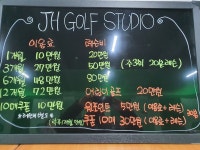 JH GOLF STUDIO
이용료 레슨비
1개월 10만원 20만원
3개월 27만원 50만원 (주3회 20분레슨)
6개월 48만원 90만원
12개월 72만원 20만원
10매쿠폰 10만원 원포인트 5만원 (이용료+레슨)
쿠폰 10회 30만원 (이용료+레슨)